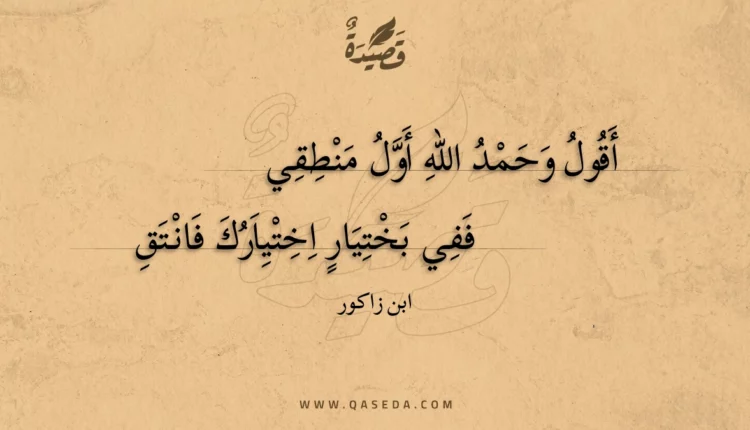 قَصِيدَةٌ
أَقُولُ وَحَمْدُ اللهِ أَوَّلُ مَنْطِقِي
فَفِي بَخْتِيَارٍ اِخِتْيِاَرُكَ فَانْتَقِ
ابن زاكور
WWW.QASEDA.COM